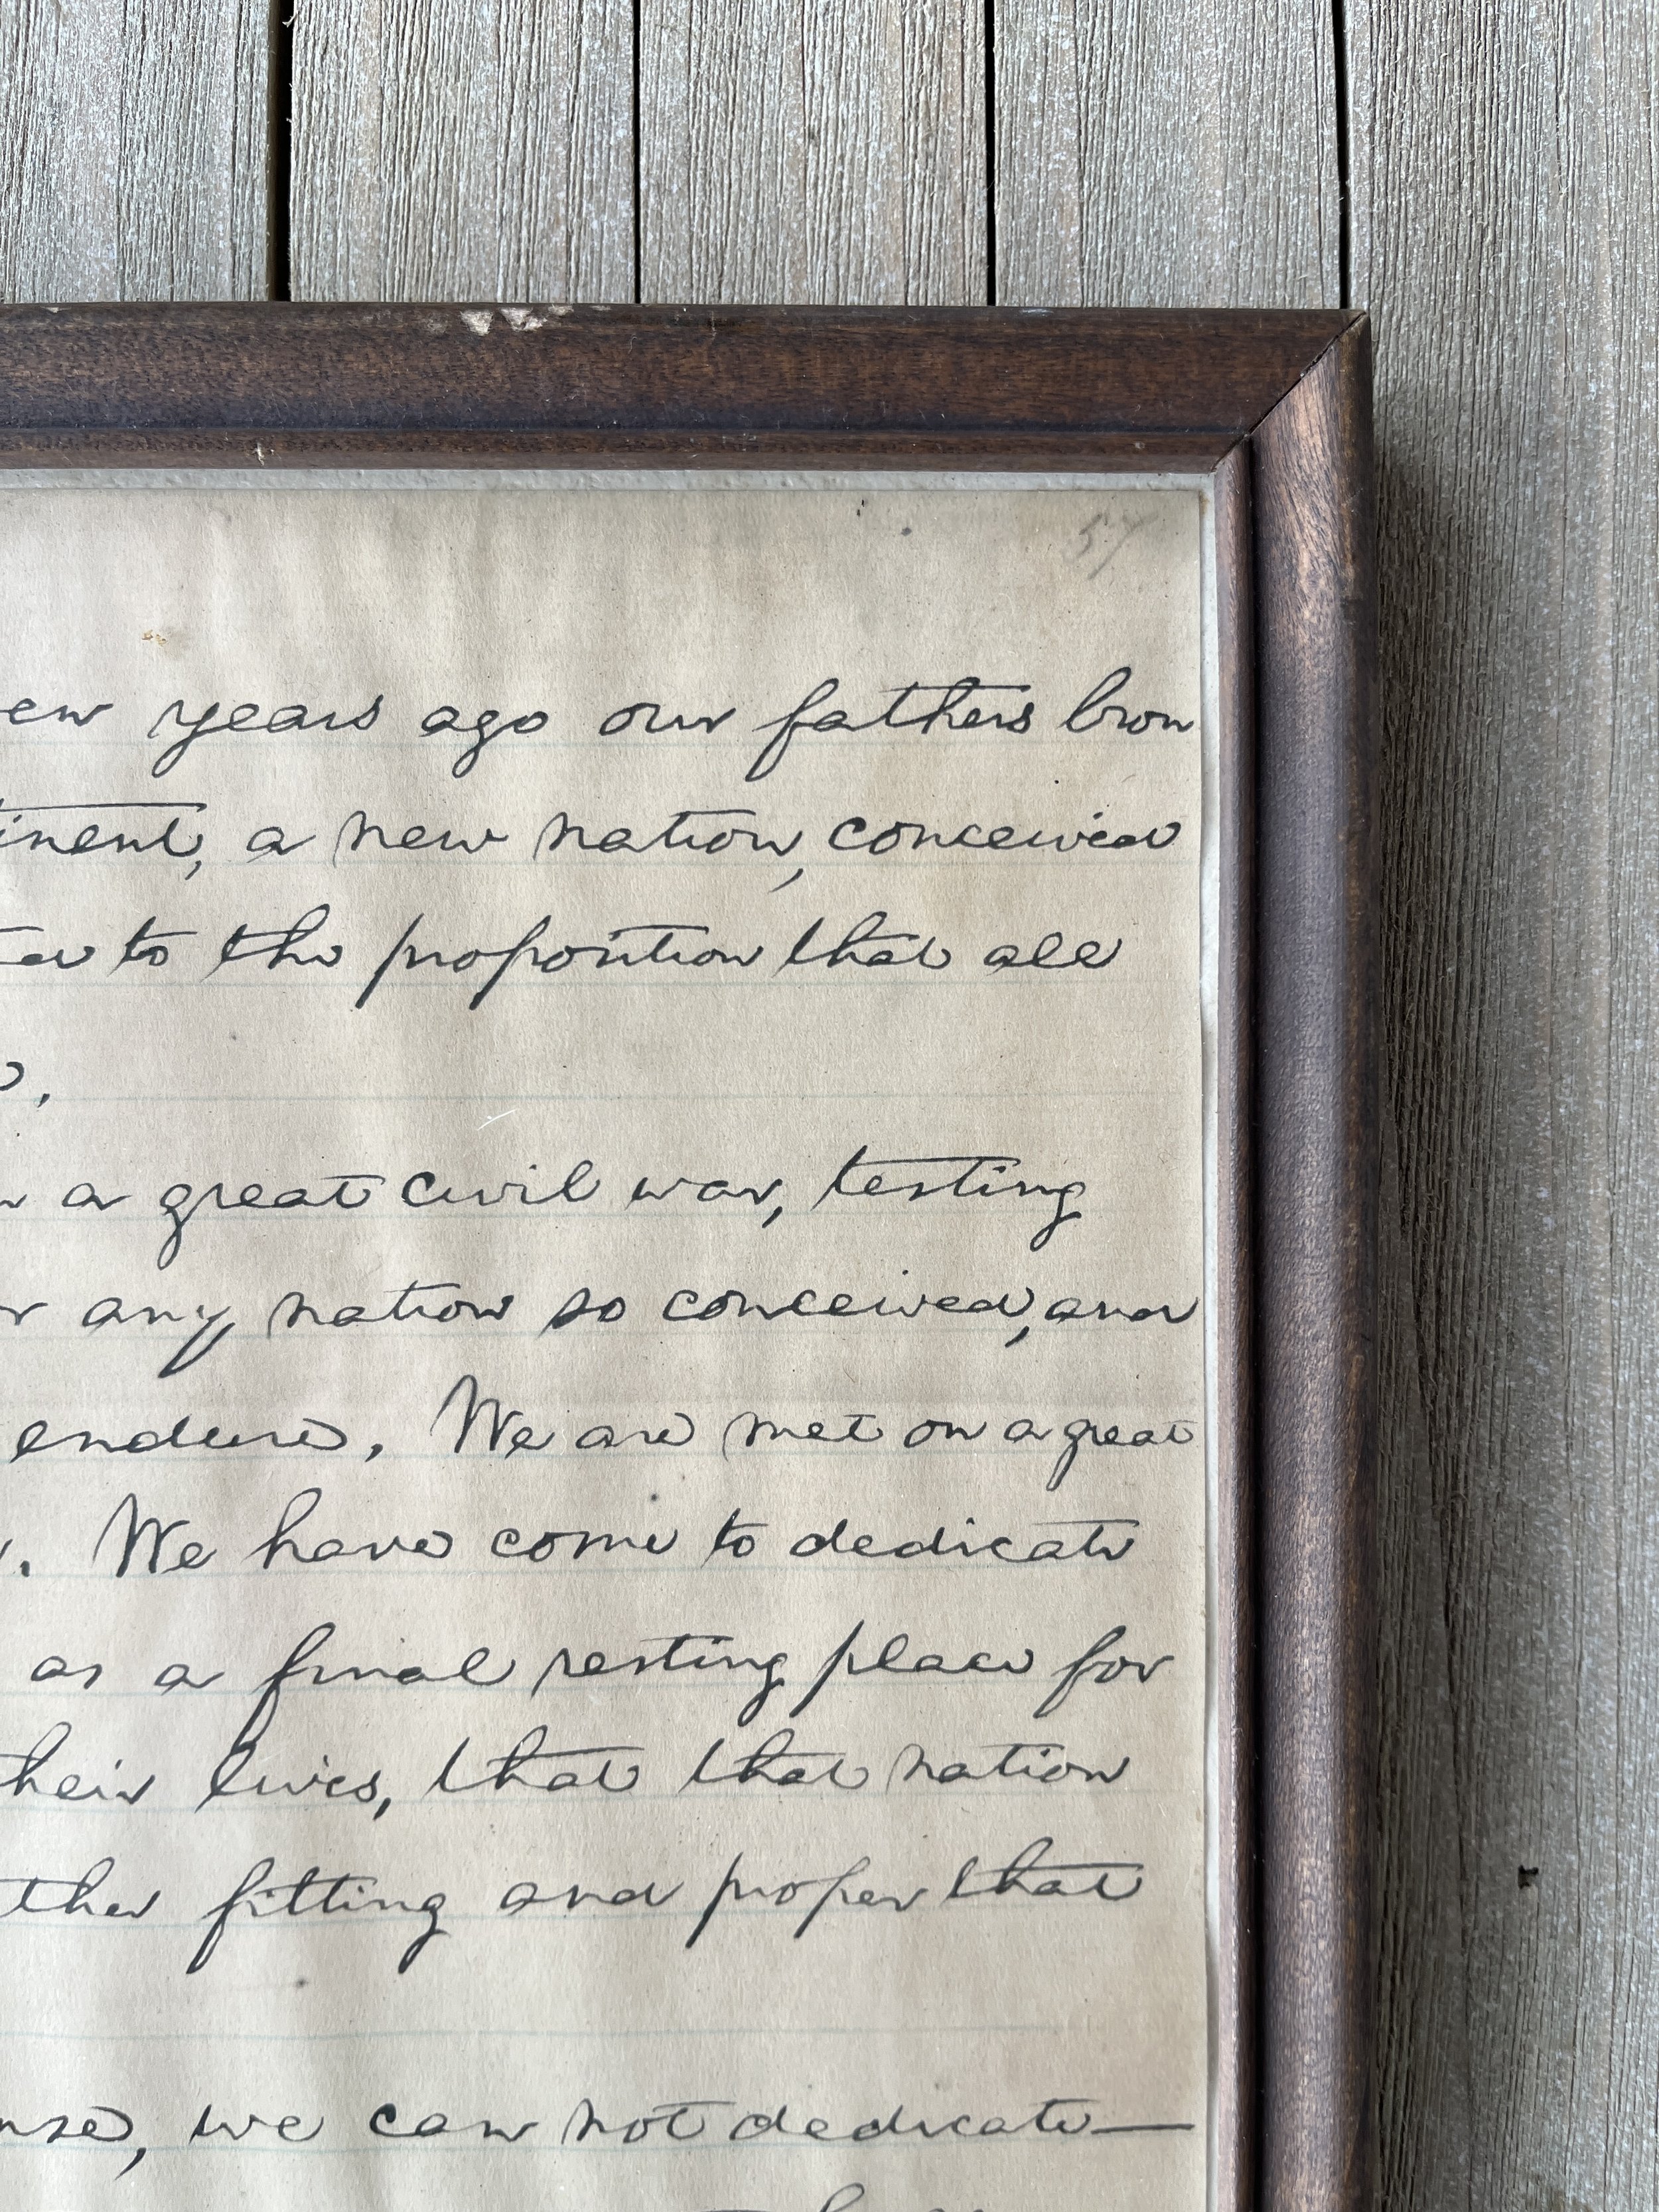 57
en years ago our fathers brou
inent, a new nation, conceived
ted to the proposition that all
a great civil war, testing
any nation so conceived, and
endure. We are met on a great
We have come to dedicate
as a final resting place for
their lives, that that nation
ther fitting and proper that
nse, we can not dedicate—